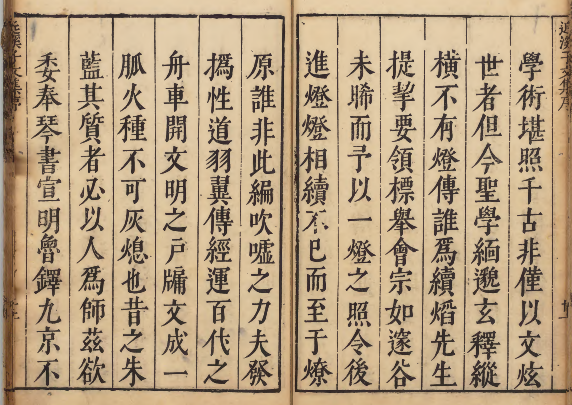 學術堪照千古非僅以文炫
世者但今聖學緬邈玄釋縱
橫不有燈傳誰爲續熖先生
提挈要領標舉會宗如邃谷
未晞而予以一燈之照令後
進燈燈相續不已而至于燎
原誰非此編吹噓之力夫發
撝性道羽翼傳經運百代之
舟車開文明之戶牖文成一
脈火種不可灰熄也昔之朱
藍其質者必以人爲師茲欲
委奉琴書宣明魯鐸九京不